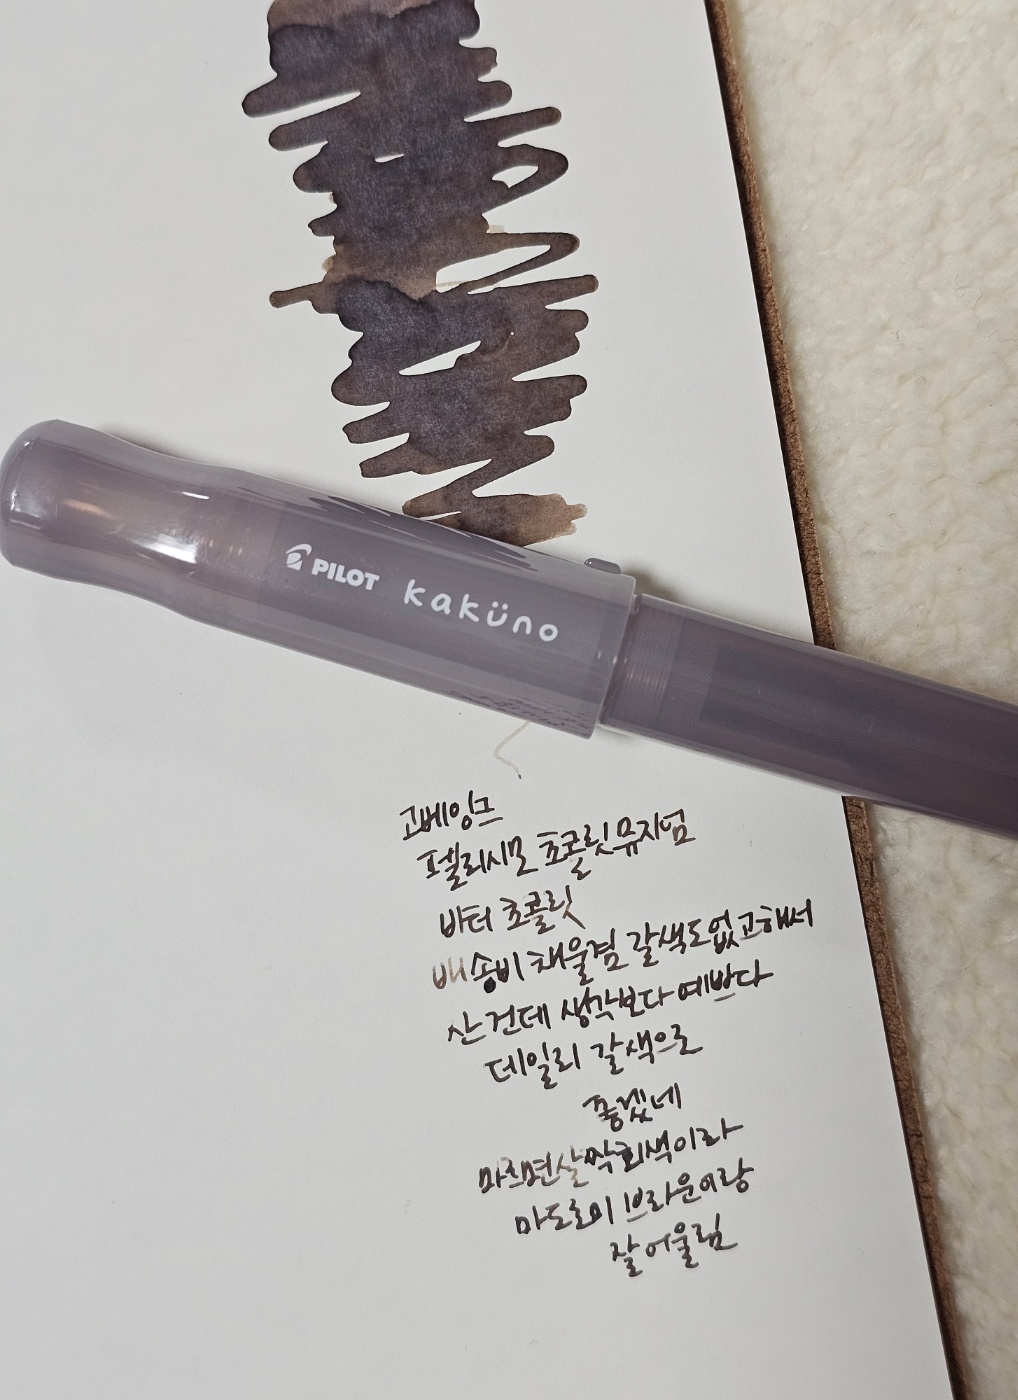 PILOT kaküno
고베잉크
펠리시모 쵸콜릿 뮤지엄
바터 쵸콜릿
배송비 채울겸 갈색도없고해서
산건데 생각보다 예쁘다
데일리 갈색으로
좋겠네
마르면살짝회색이라
마도로미 브라운이랑
잘어울림